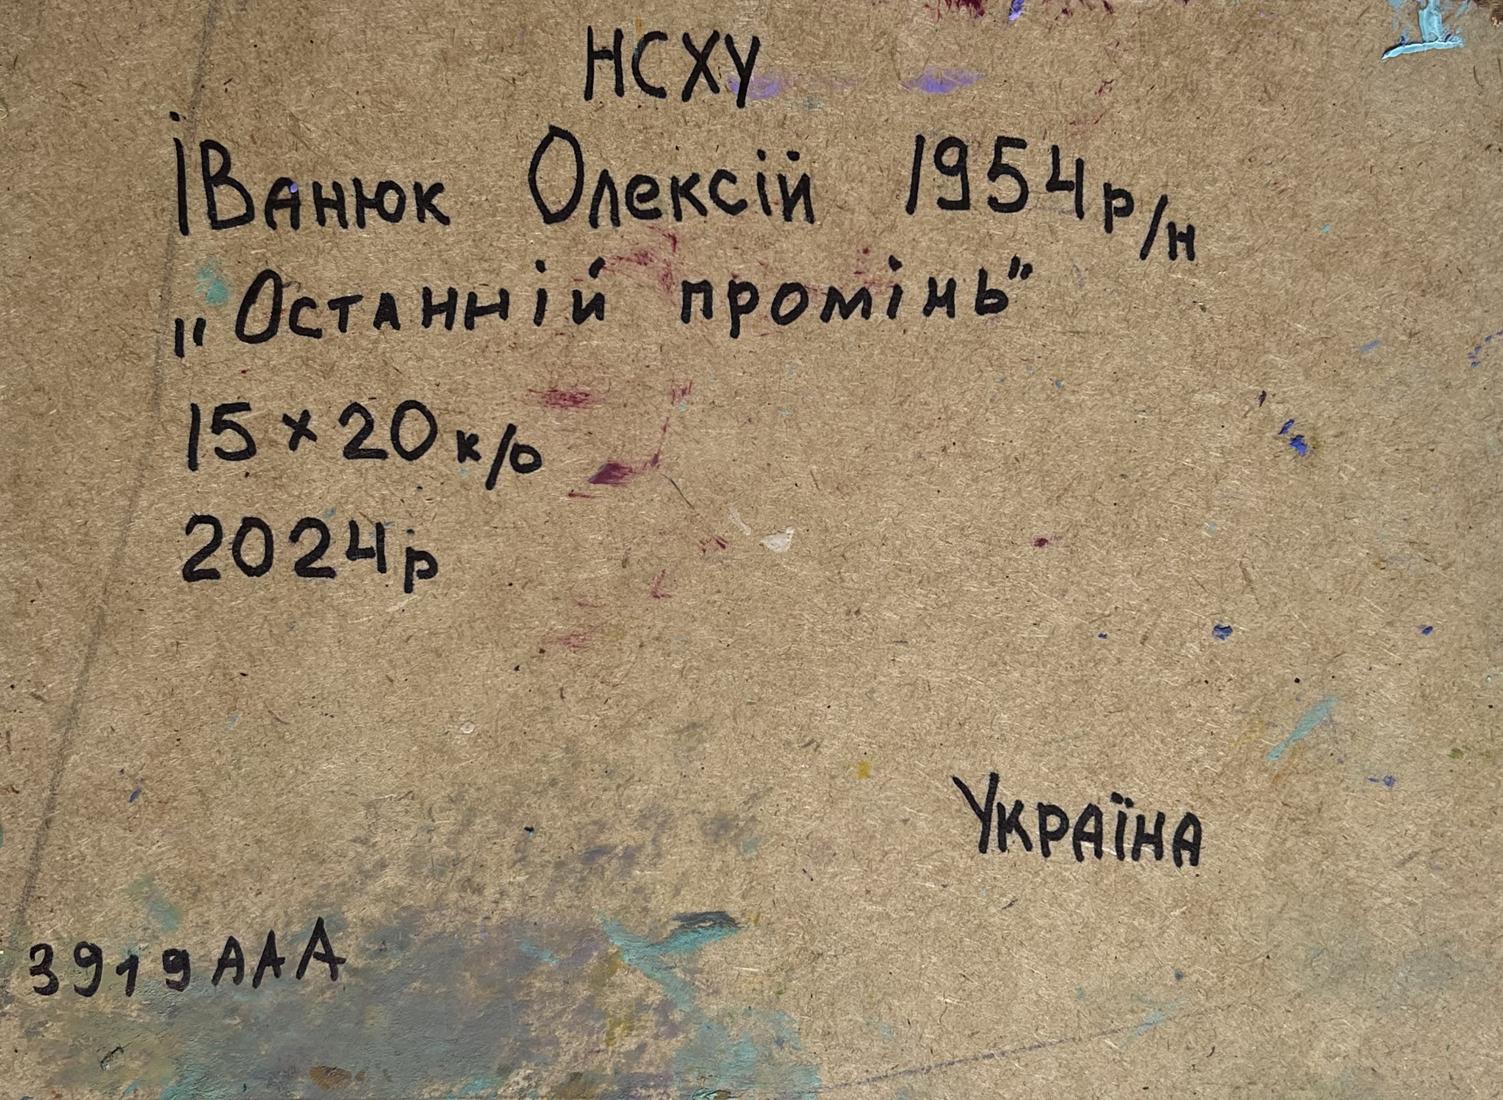 НСХУ
Іванюк Олексій 1954р/н
„Останній промінь”
15×20 к/о
2024р
Україна
3919ААА